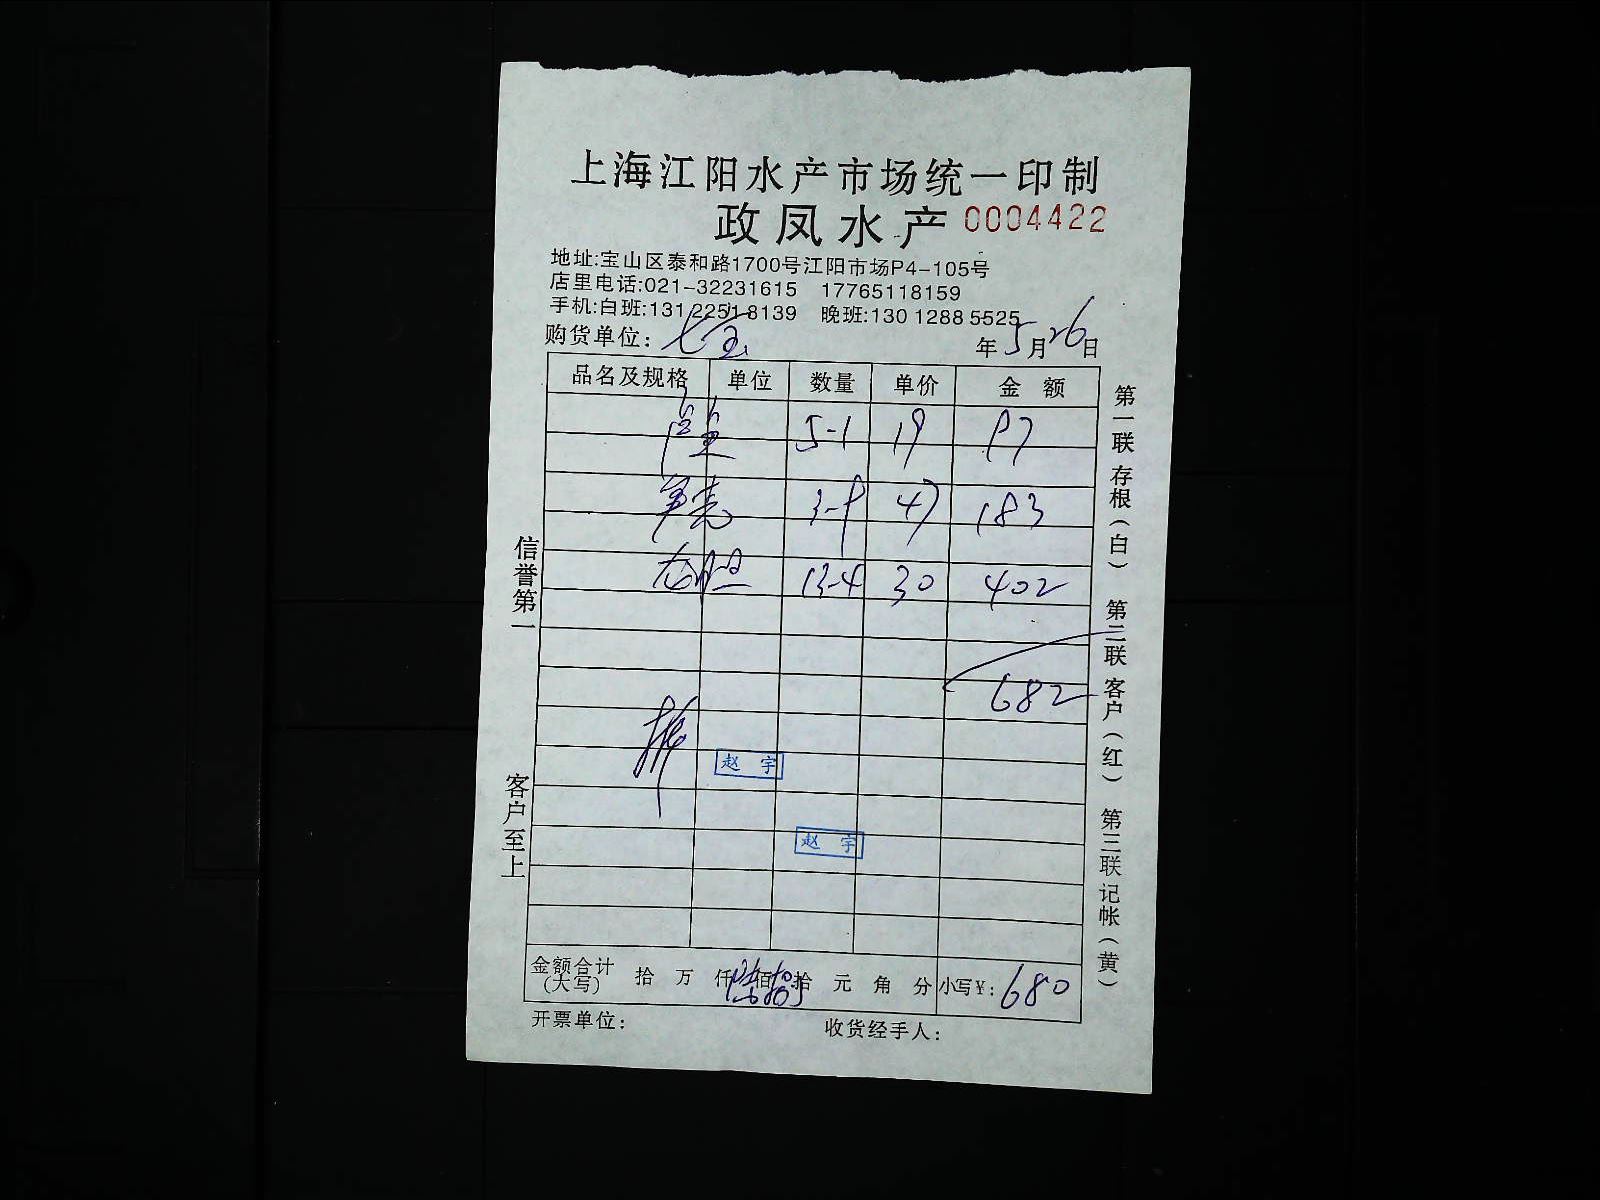 上海江阳水产市场统一印制
政凤水产 0004422
地址:宝山区泰和路1700号江阳市场P4-105号
店里电话:021-32231615 17765118159
手机:白班:131 2251 8139 晚班:130 1288 5525
购货单位: 七宝 年 5 月 26 日
品名及规格 单位 数量 单价 金 额
5-1 19 97
3-9 47 183
龙胆 13-4 30 402
682
赵 宇
赵 宇
金额合计 (大写) 拾 万 仟 佰 拾 元 角 分 小写¥: 680
开票单位: 收货经手人:
信誉第一
客户至上
第一联 存根(白) 第二联 客户(红) 第三联 记帐(黄)